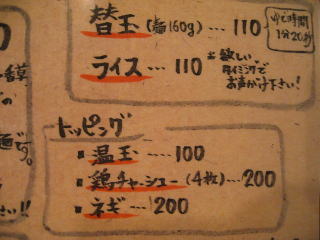 替玉(麺160g)…110
ゆで時間
1分20秒
ライス…110
お欲しい
タイミングで
お声がけ下さい!
トッピング
温玉…100
鶏チャーシュー(4枚)…200
ネギ…200
麺です。